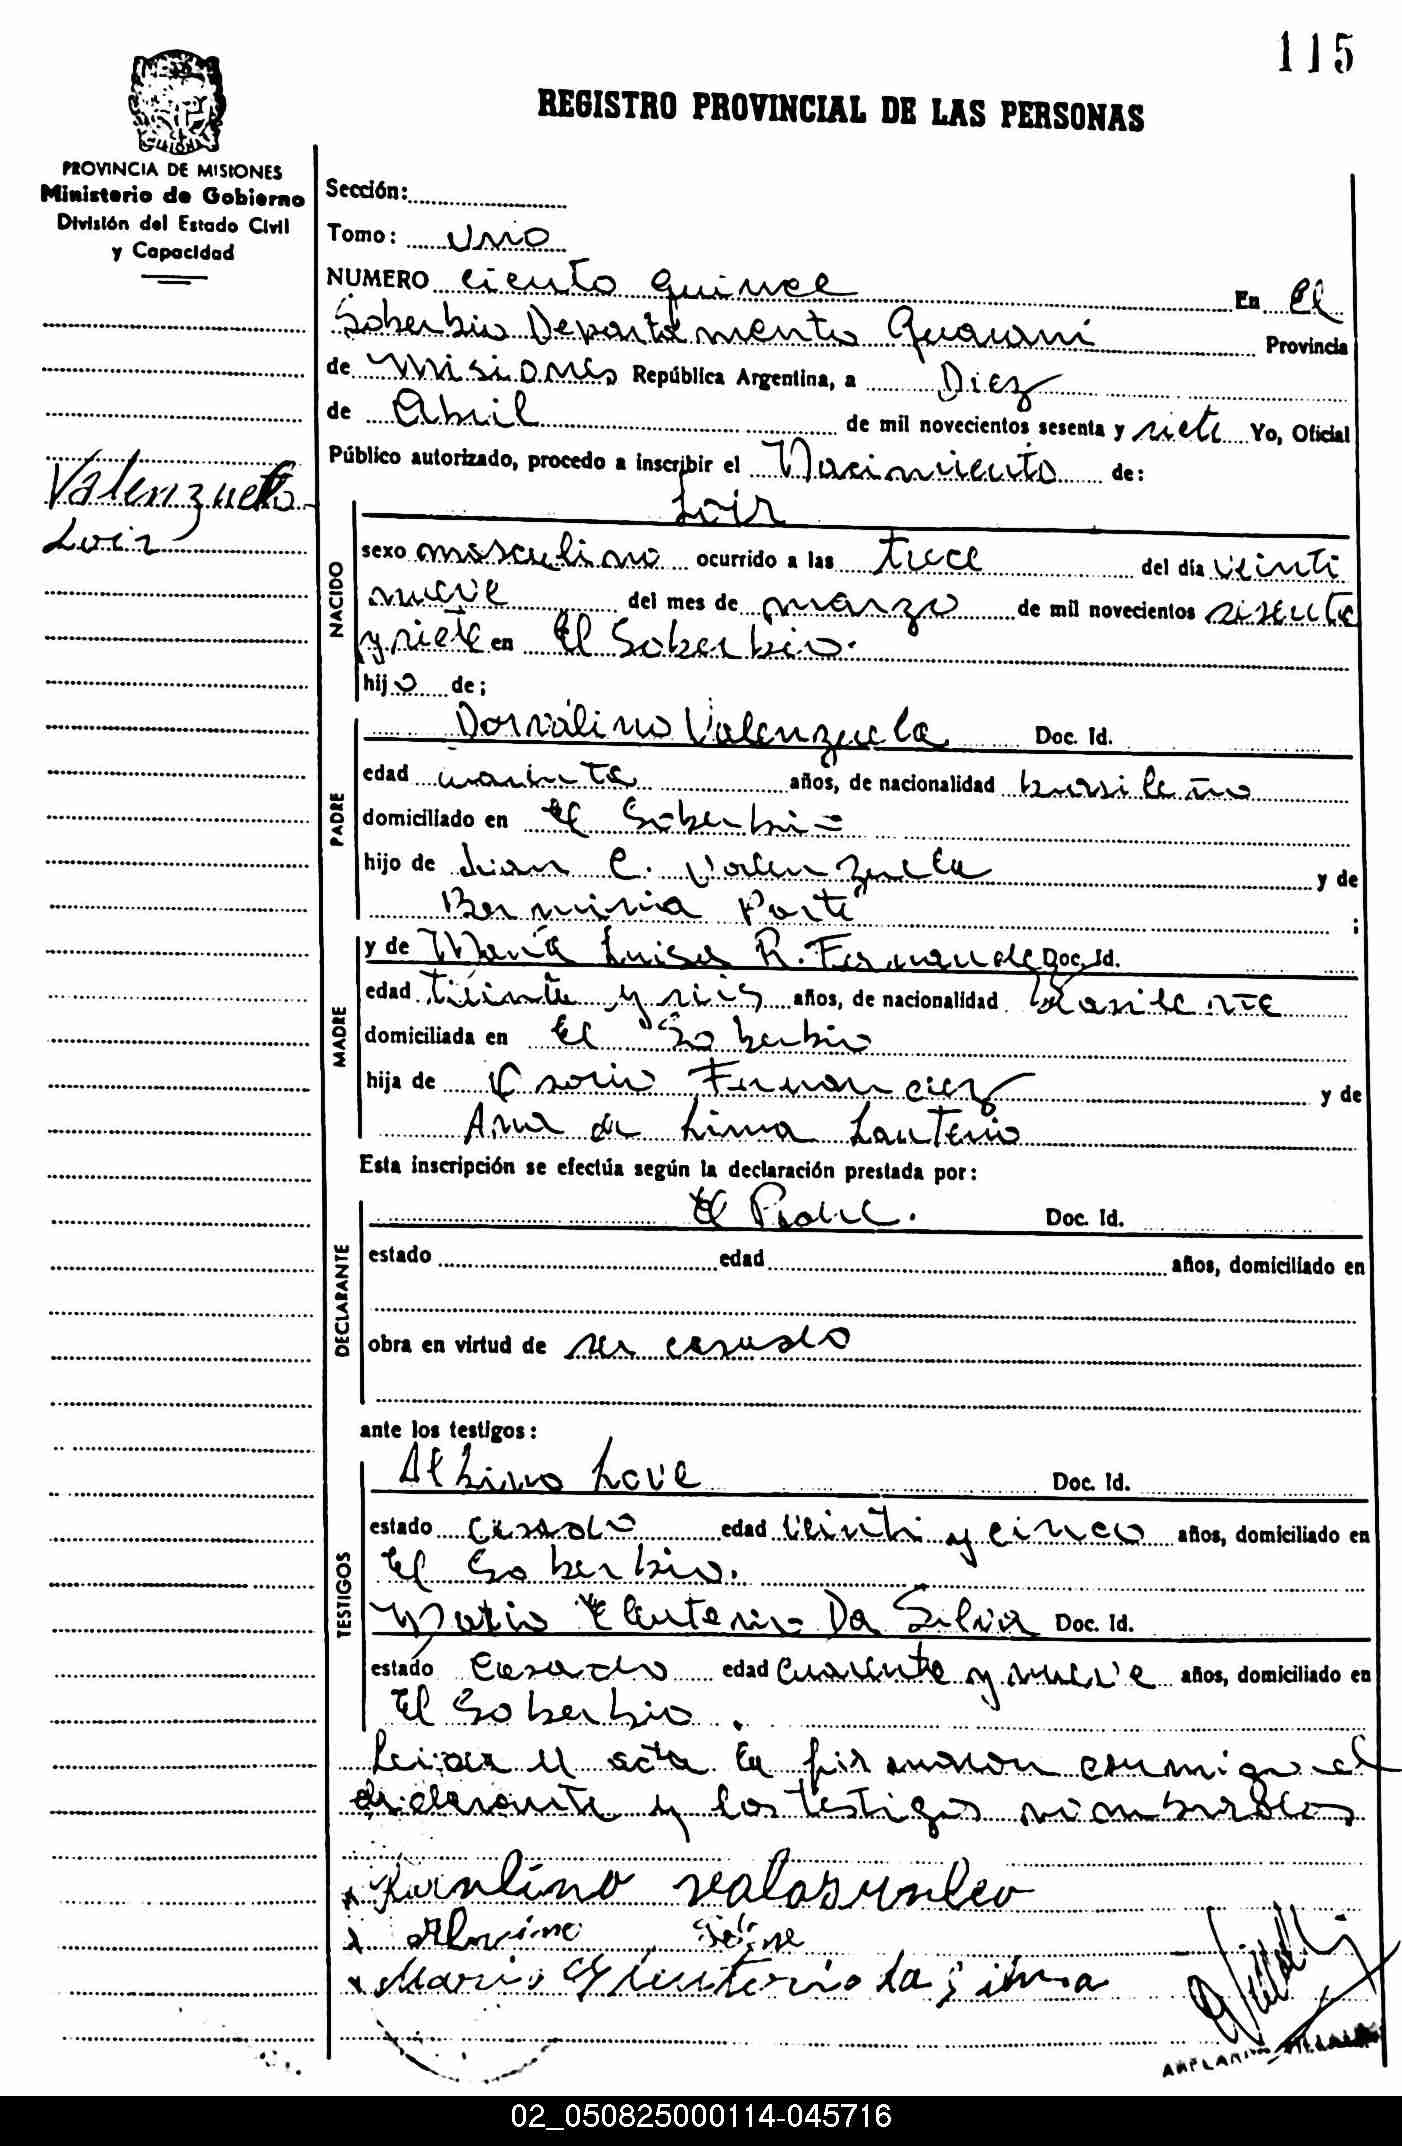 115
REGISTRO PROVINCIAL DE LAS PERSONAS
PROVINCIA DE MISIONES
Ministerio de Gobierno
División del Estado Civil
y Capacidad
Valenzuela
Loir
Sección:
Tomo: uno
NUMERO ciento quince En El
Soberbio Departamento Guarani Provincia
de Misiones República Argentina, a Diez
de Abril de mil novecientos sesenta y siete Yo, Oficial
Público autorizado, procedo a inscribir el Nacimiento de:
Loir
NACIDO
sexo masculino ocurrido a las trece del día veinti
nueve del mes de marzo de mil novecientos sesenta
y siete en El Soberbio.
hijo de;
PADRE
Dorvalino Valenzuela Doc. Id.
edad años, de nacionalidad brasileño
domiciliado en El Soberbio
hijo de Juan C. Valenzuela y de
;
MADRE
y de María Luisa R. Fernandez Doc. Id.
edad treinta y seis años, de nacionalidad
domiciliada en El Soberbio
hija de Fernandez y de
Ana de Lima
Esta inscripción se efectúa según la declaración prestada por:
DECLARANTE
El Padre. Doc. Id.
estado edad años, domiciliado en
obra en virtud de ser casado
ante los testigos:
TESTIGOS
Albino Doc. Id.
estado casado edad veinti y cinco años, domiciliado en
El Soberbio.
Mario Eleuterio Da Silva Doc. Id.
estado Casado edad cuarenta y nueve años, domiciliado en
El Soberbio.
Leida el acta la firmaron conmigo el
declarante y los testigos nombrados
Mario Eleuterio da Silva
02_050825000114-045716